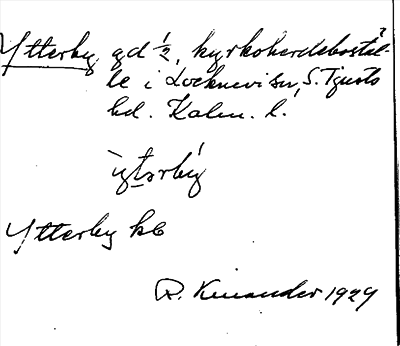 Ytterby gd ½, kyrkoherdeboställe
le i Locknevi sn, S. Tjusts
hd. Kalm. l.
ỳtərbý
Ytterby kb
R. Kinander 1929